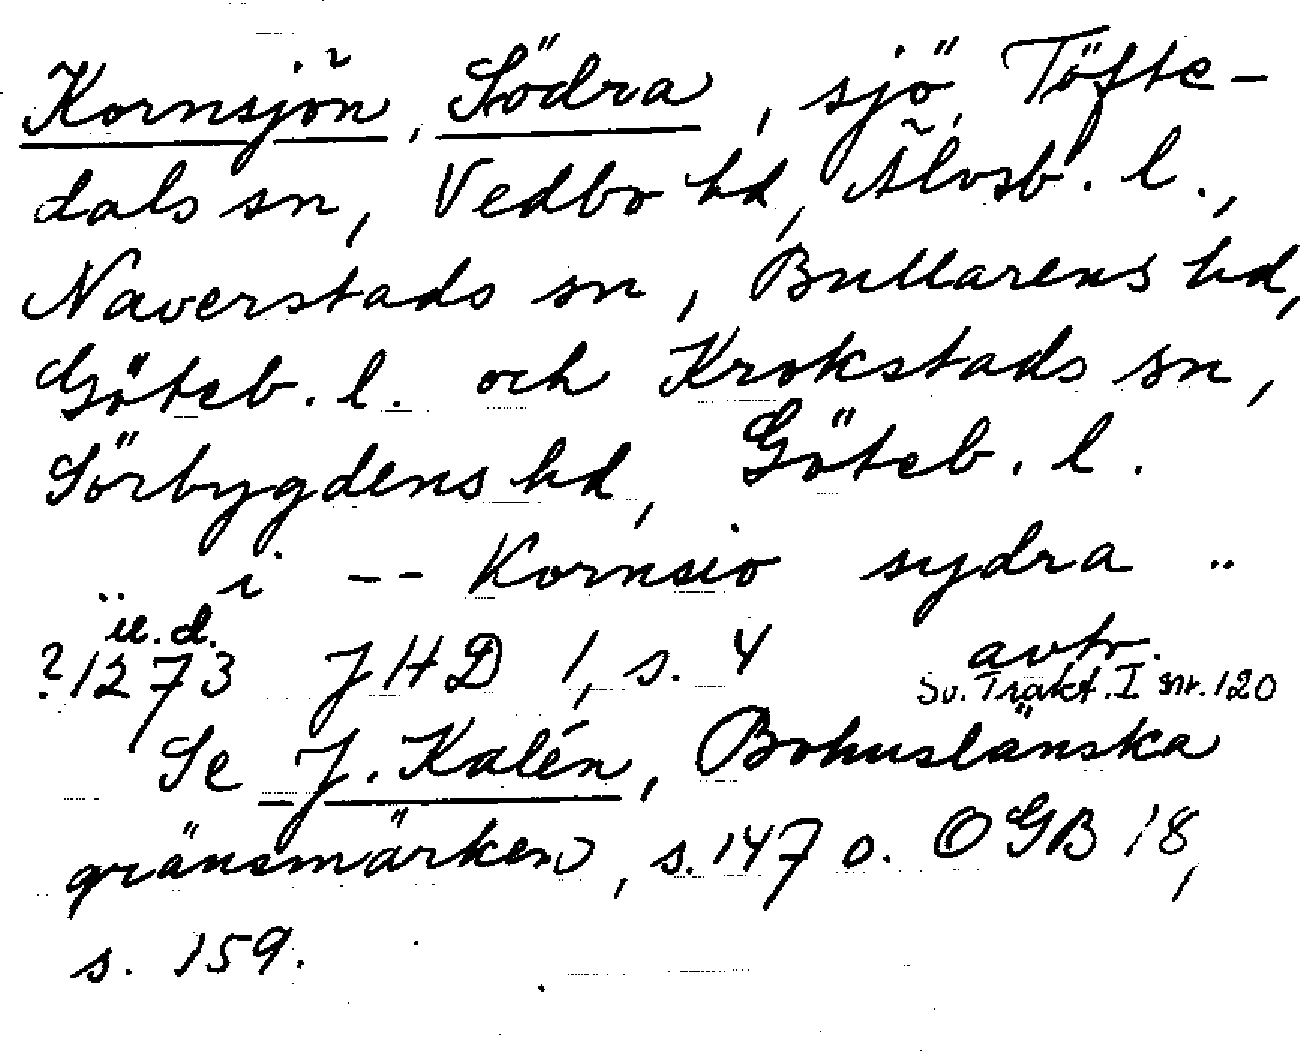 Kornsjön, Södra, sjö Töfte-
dals sn, Vedbo hd, Älvsb. l.,
Naverstads sn, Bullarens hd,
Göteb. l. och Krokstads sn,
Sörbygdens hd, Göteb. l.
.. i -- Kornsio sydra ..
u.d.
?1273 JHD 1, s. 4 avtr.
Sv. Trakt. I nr. 120
Se J. Kalén, Bohuslänska
gränsmärken, s. 147 o. OGB 18,
s. 159.